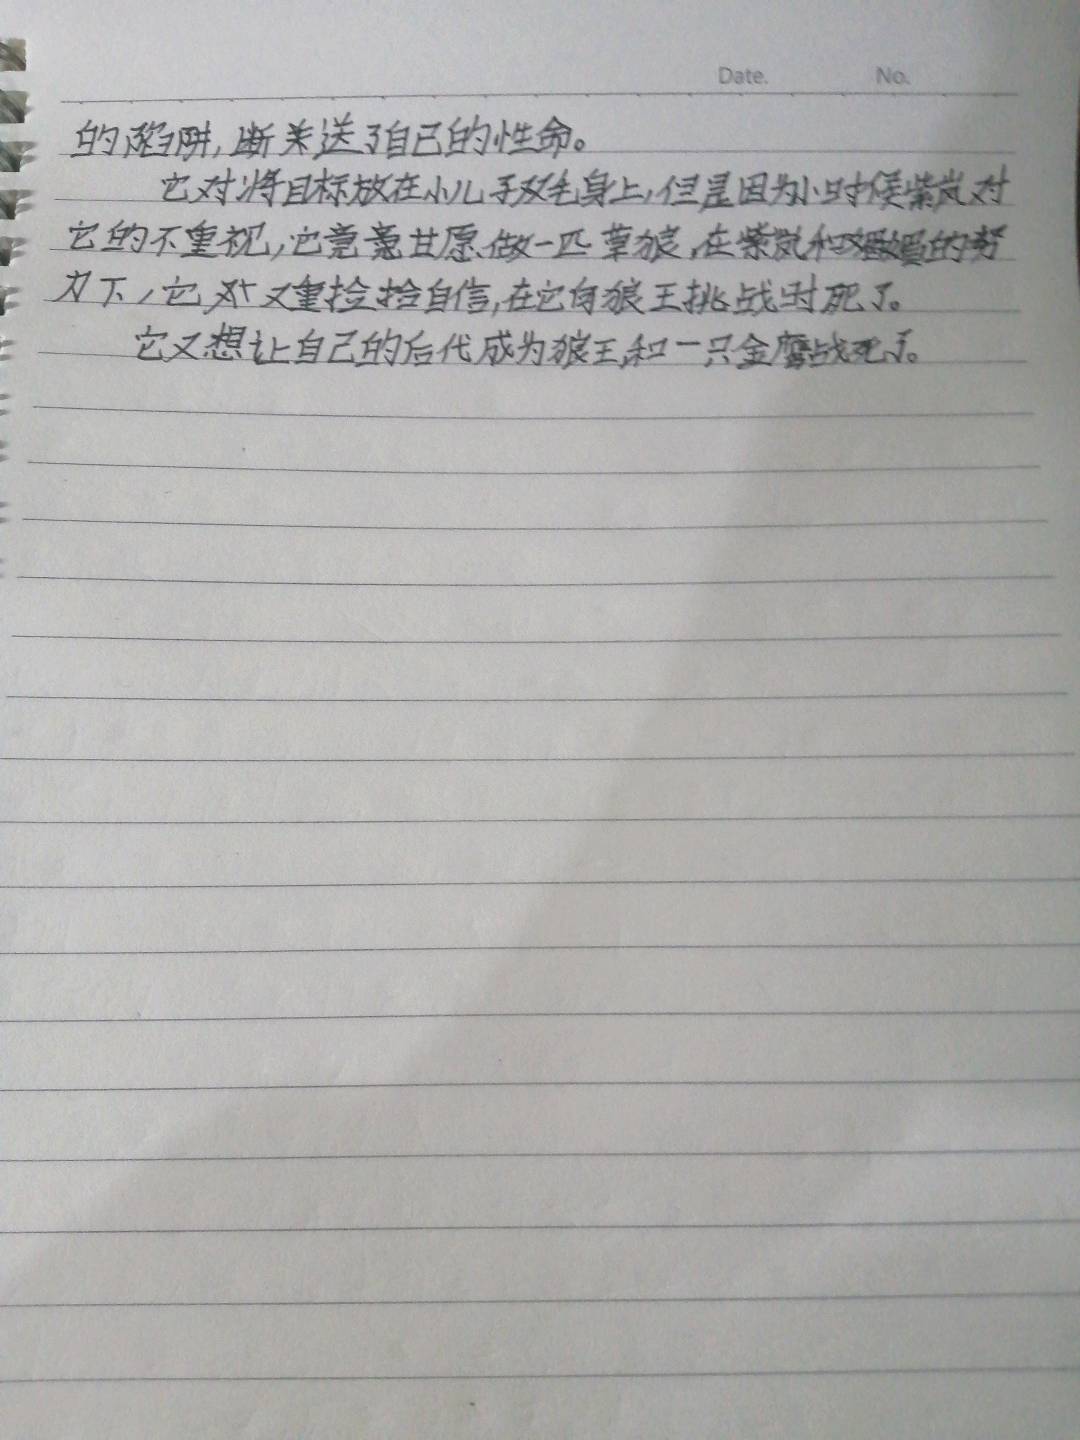 Date. No.
的陷阱,断关送了自己的性命。
它对将目标放在小儿子双毛身上,但是因为小时候紫岚对
它的不重视,它竟意甘愿做一匹草狼,在紫岚和媚媚的努
力下,它对又重捡拾自信,在它向狼王挑战时死了。
它又想让自己的后代成为狼王,和一只金鹰战死了。